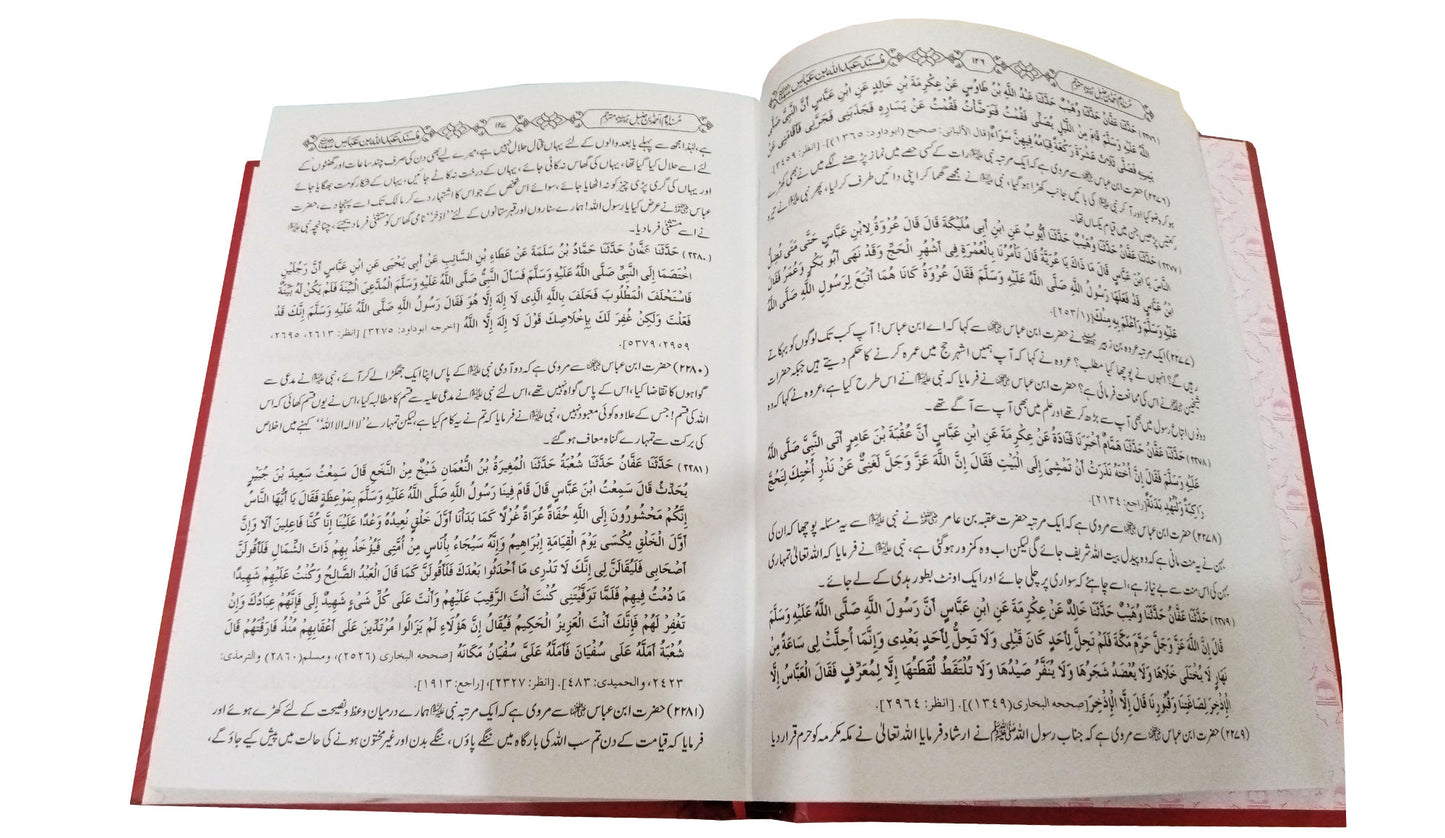 مُسنَد عَبد الله بن عَبّاس
١٢٦
مُسنَد امام احمد بن حنبل مترجم
(٢٢٧٦) حَدَّثَنَا عَفَّانُ حَدَّثَنَا وُهَيْبٌ حَدَّثَنَا عَبْدُ اللَّهِ بْنُ طَاوُسٍ عَنْ عِكْرِمَةَ بْنِ خَالِدٍ عَنِ ابْنِ عَبَّاسٍ أَنَّ النَّبِيَّ صَلَّى
اللَّهُ عَلَيْهِ وَسَلَّمَ قَامَ مِنَ اللَّيْلِ يُصَلِّي فَقُمْتُ فَتَوَضَّأْتُ فَقُمْتُ عَنْ يَسَارِهِ فَجَذَبَنِي فَجَرَّنِي فَأَقَامَنِي عَنْ
يَمِينِهِ فَصَلَّى ثَلَاثَ عَشْرَةَ رَكْعَةً قِيَامُهُ فِيهِنَّ سَوَاءٌ [قال الألباني: صحيح (ابوداود: ١٣٦٥)]. [انظر: ٣٤٥٩].
(٢٢٧٦) حضرت ابن عباس رضی اللہ عنہما سے مروی ہے کہ ایک مرتبہ نبی علیہ السلام رات کے کسی حصے میں نماز پڑھنے لگے میں نے بھی کھڑے
ہو کر وضو کیا اور آ کر نبی علیہ السلام کی بائیں جانب کھڑا ہو گیا، نبی علیہ السلام نے مجھے گھما کر اپنی دائیں طرف کر لیا، پھر نبی علیہ السلام نے تیرہ
رکعتیں پڑھیں جن میں قیام یکساں تھا۔
(٢٢٧٧) حَدَّثَنَا عَفَّانُ حَدَّثَنَا وُهَيْبٌ حَدَّثَنَا أَيُّوبُ عَنِ ابْنِ أَبِي مُلَيْكَةَ قَالَ قَالَ عُرْوَةُ لِابْنِ عَبَّاسٍ حَتَّى مَتَى تُضِلُّ
النَّاسَ يَا ابْنَ عَبَّاسٍ قَالَ مَا ذَاكَ يَا عُرَيَّةُ قَالَ تَأْمُرُنَا بِالْعُمْرَةِ فِي أَشْهُرِ الْحَجِّ وَقَدْ نَهَى أَبُو بَكْرٍ وَعُمَرُ فَقَالَ
ابْنُ عَبَّاسٍ قَدْ فَعَلَهَا رَسُولُ اللَّهِ صَلَّى اللَّهُ عَلَيْهِ وَسَلَّمَ فَقَالَ عُرْوَةُ كَانَا هُمَا أَتْبَعَ لِرَسُولِ اللَّهِ صَلَّى اللَّهُ
عَلَيْهِ وَسَلَّمَ وَأَعْلَمَ بِهِ مِنْكَ (٢٥٣/١).
(٢٢٧٧) ایک مرتبہ عروہ بن زبیر نے حضرت ابن عباس رضی اللہ عنہما سے کہا کہ اے ابن عباس! آپ کب تک لوگوں کو بہکاتے
رہیں گے؟ انہوں نے پوچھا کیا مطلب؟ عروہ نے کہا کہ آپ ہمیں اشہر حج میں عمرہ کرنے کا حکم دیتے ہیں جبکہ حضرات
شیخین نے اس کی ممانعت فرمائی ہے؟ حضرت ابن عباس رضی اللہ عنہما نے فرمایا کہ نبی علیہ السلام نے اس طرح کیا ہے، عروہ نے کہا کہ وہ
دونوں اتباع رسول میں بھی آپ سے بڑھ کر تھے اور علم میں بھی آپ سے آگے تھے۔
(٢٢٧٨) حَدَّثَنَا عَفَّانُ حَدَّثَنَا هَمَّامٌ أَخْبَرَنَا قَتَادَةُ عَنْ عِكْرِمَةَ عَنِ ابْنِ عَبَّاسٍ أَنَّ عُقْبَةَ بْنَ عَامِرٍ أَتَى النَّبِيَّ صَلَّى اللَّهُ
عَلَيْهِ وَسَلَّمَ فَقَالَ إِنَّ أُخْتَهُ نَذَرَتْ أَنْ تَمْشِيَ إِلَى الْبَيْتِ فَقَالَ إِنَّ اللَّهَ عَزَّ وَجَلَّ لَغَنِيٌّ عَنْ نَذْرِ أُخْتِكَ لِتَحُجَّ
رَاكِبَةً وَلْتُهْدِ بَدَنَةً [راجع: ٢١٣٤].
(٢٢٧٨) حضرت ابن عباس رضی اللہ عنہما سے مروی ہے کہ ایک مرتبہ حضرت عقبہ بن عامر رضی اللہ عنہ نے نبی علیہ السلام سے یہ مسئلہ پوچھا کہ ان کی
بہن نے یہ منت مانی ہے کہ وہ پیدل بیت اللہ شریف جائے گی لیکن اب وہ کمزور ہوگئی ہے، نبی علیہ السلام نے فرمایا کہ اللہ تعالیٰ تمہاری
بہن کی اس منت سے بے نیاز ہے، اسے چاہئے کہ سواری پر چلی جائے اور ایک اونٹ بطور ہدی کے لے جائے۔
(٢٢٧٩) حَدَّثَنَا عَفَّانُ حَدَّثَنَا وُهَيْبٌ حَدَّثَنَا خَالِدٌ عَنْ عِكْرِمَةَ عَنِ ابْنِ عَبَّاسٍ أَنَّ رَسُولَ اللَّهِ صَلَّى اللَّهُ عَلَيْهِ وَسَلَّمَ
قَالَ إِنَّ اللَّهَ عَزَّ وَجَلَّ حَرَّمَ مَكَّةَ فَلَمْ تَحِلَّ لِأَحَدٍ كَانَ قَبْلِي وَلَا تَحِلُّ لِأَحَدٍ بَعْدِي وَإِنَّمَا أُحِلَّتْ لِي سَاعَةً مِنْ
نَهَارٍ لَا يُخْتَلَى خَلَاهَا وَلَا يُعْضَدُ شَجَرُهَا وَلَا يُنَفَّرُ صَيْدُهَا وَلَا تُلْتَقَطُ لُقَطَتُهَا إِلَّا لِمُعَرِّفٍ فَقَالَ الْعَبَّاسُ إِلَّا
الْإِذْخِرَ لِصَاغَتِنَا وَقُبُورِنَا قَالَ إِلَّا الْإِذْخِرَ [صححه البخاری (١٣٤٩)]. [انظر: ٢٩٦٤].
(٢٢٧٩) حضرت ابن عباس رضی اللہ عنہما سے مروی ہے کہ جناب رسول اللہ ﷺ نے ارشاد فرمایا اللہ تعالیٰ نے مکہ مکرمہ کو حرم قرار دیا
مُسنَد عَبد الله بن عَبّاس
١٢٧
مُسنَد امام احمد بن حنبل مترجم
ہے، لہٰذا مجھ سے پہلے یا بعد والوں کے لئے یہاں قتال حلال نہیں ہے، میرے لیے بھی دن کی صرف چند ساعات اور گھنٹوں کے
لئے اسے حلال کیا گیا تھا، یہاں کی گھاس نہ کاٹی جائے، یہاں کے درخت نہ کاٹے جائیں، یہاں کے شکار کو مت بھگایا جائے
اور یہاں کی گری پڑی چیز کو نہ اٹھایا جائے، سوائے اس شخص کے جو اس کا اشتہار دے کر مالک تک اسے پہنچا دے، حضرت
عباس رضی اللہ عنہ نے عرض کیا یا رسول اللہ! ہمارے سناروں اور قبرستانوں کے لئے ''اذخر'' نامی گھاس کو مستثنیٰ فرما دیجئے، چنانچہ نبی علیہ السلام
نے اسے مستثنیٰ فرما دیا۔
(٢٢٨٠) حَدَّثَنَا عَفَّانُ حَدَّثَنَا حَمَّادُ بْنُ سَلَمَةَ عَنْ عَطَاءِ بْنِ السَّائِبِ عَنْ أَبِي يَحْيَى عَنِ ابْنِ عَبَّاسٍ أَنَّ رَجُلَيْنِ
اخْتَصَمَا إِلَى النَّبِيِّ صَلَّى اللَّهُ عَلَيْهِ وَسَلَّمَ فَسَأَلَ النَّبِيُّ صَلَّى اللَّهُ عَلَيْهِ وَسَلَّمَ الْمُدَّعِيَ الْبَيِّنَةَ فَلَمْ يَكُنْ لَهُ بَيِّنَةٌ
فَاسْتَحْلَفَ الْمَطْلُوبَ فَحَلَفَ بِاللَّهِ الَّذِي لَا إِلَهَ إِلَّا هُوَ فَقَالَ رَسُولُ اللَّهِ صَلَّى اللَّهُ عَلَيْهِ وَسَلَّمَ إِنَّكَ قَدْ
فَعَلْتَ وَلَكِنْ غُفِرَ لَكَ بِإِخْلَاصِكَ قَوْلَ لَا إِلَهَ إِلَّا اللَّهُ [اخرجه ابوداود: ٣٢٧٥] [انظر: ٢٦١٣، ٢٦٩٥،
٢٩٥٩، ٥٣٧٩].
(٢٢٨٠) حضرت ابن عباس رضی اللہ عنہما سے مروی ہے کہ دو آدمی نبی علیہ السلام کے پاس اپنا ایک جھگڑا لے کر آئے، نبی علیہ السلام نے مدعی سے
گواہوں کا تقاضا کیا، اس کے پاس گواہ نہیں تھے، اس لئے نبی علیہ السلام نے مدعی علیہ سے قسم کا مطالبہ کیا، اس نے یوں قسم کھائی کہ اس
اللہ کی قسم! جس کے علاوہ کوئی معبود نہیں، نبی علیہ السلام نے فرمایا کہ تم نے یہ کام کیا ہے، لیکن تمہارے ''لا الہ الا اللہ'' کہنے میں اخلاص
کی برکت سے تمہارے گناہ معاف ہو گئے۔
(٢٢٨١) حَدَّثَنَا عَفَّانُ حَدَّثَنَا شُعْبَةُ حَدَّثَنَا الْمُغِيرَةُ بْنُ النُّعْمَانِ شَيْخٌ مِنَ النَّخَعِ قَالَ سَمِعْتُ سَعِيدَ بْنَ جُبَيْرٍ
يُحَدِّثُ قَالَ سَمِعْتُ ابْنَ عَبَّاسٍ قَالَ قَامَ فِينَا رَسُولُ اللَّهِ صَلَّى اللَّهُ عَلَيْهِ وَسَلَّمَ بِمَوْعِظَةٍ فَقَالَ يَا أَيُّهَا النَّاسُ
إِنَّكُمْ مَحْشُورُونَ إِلَى اللَّهِ حُفَاةً عُرَاةً غُرْلًا كَمَا بَدَأْنَا أَوَّلَ خَلْقٍ نُعِيدُهُ وَعْدًا عَلَيْنَا إِنَّا كُنَّا فَاعِلِينَ أَلَا وَإِنَّ
أَوَّلَ الْخَلْقِ يُكْسَى يَوْمَ الْقِيَامَةِ إِبْرَاهِيمُ وَإِنَّهُ سَيُجَاءُ بِأُنَاسٍ مِنْ أُمَّتِي فَيُؤْخَذُ بِهِمْ ذَاتَ الشِّمَالِ فَلَأَقُولَنَّ
أَصْحَابِي فَلَيُقَالَنَّ لِي إِنَّكَ لَا تَدْرِي مَا أَحْدَثُوا بَعْدَكَ فَلَأَقُولَنَّ كَمَا قَالَ الْعَبْدُ الصَّالِحُ وَكُنْتُ عَلَيْهِمْ شَهِيدًا
مَا دُمْتُ فِيهِمْ فَلَمَّا تَوَفَّيْتَنِي كُنْتَ أَنْتَ الرَّقِيبَ عَلَيْهِمْ وَأَنْتَ عَلَى كُلِّ شَيْءٍ شَهِيدٌ إِلَى فَإِنَّهُمْ عِبَادُكَ وَإِنْ
تَغْفِرْ لَهُمْ فَإِنَّكَ أَنْتَ الْعَزِيزُ الْحَكِيمُ فَيُقَالُ إِنَّ هَؤُلَاءِ لَمْ يَزَالُوا مُرْتَدِّينَ عَلَى أَعْقَابِهِمْ مُنْذُ فَارَقْتَهُمْ قَالَ
شُعْبَةُ أَمَلَّهُ عَلَى سُفْيَانَ فَأَمَلَّهُ عَلَيَّ سُفْيَانُ مَكَانَهُ [صححه البخاری (٢٥٢٦)، ومسلم (٢٨٦٠) والترمذی:
٢٤٢٣، والحميدی: ٤٨٣]. [انظر: ٢٣٢٧]، [راجع: ١٩١٣].
(٢٢٨١) حضرت ابن عباس رضی اللہ عنہما سے مروی ہے کہ ایک مرتبہ نبی علیہ السلام ہمارے درمیان وعظ ونصیحت کے لئے کھڑے ہوئے اور
فرمایا کہ قیامت کے دن تم سب اللہ کی بارگاہ میں ننگے پاؤں، ننگے بدن اور غیر مختون ہونے کی حالت میں پیش کیے جاؤ گے،